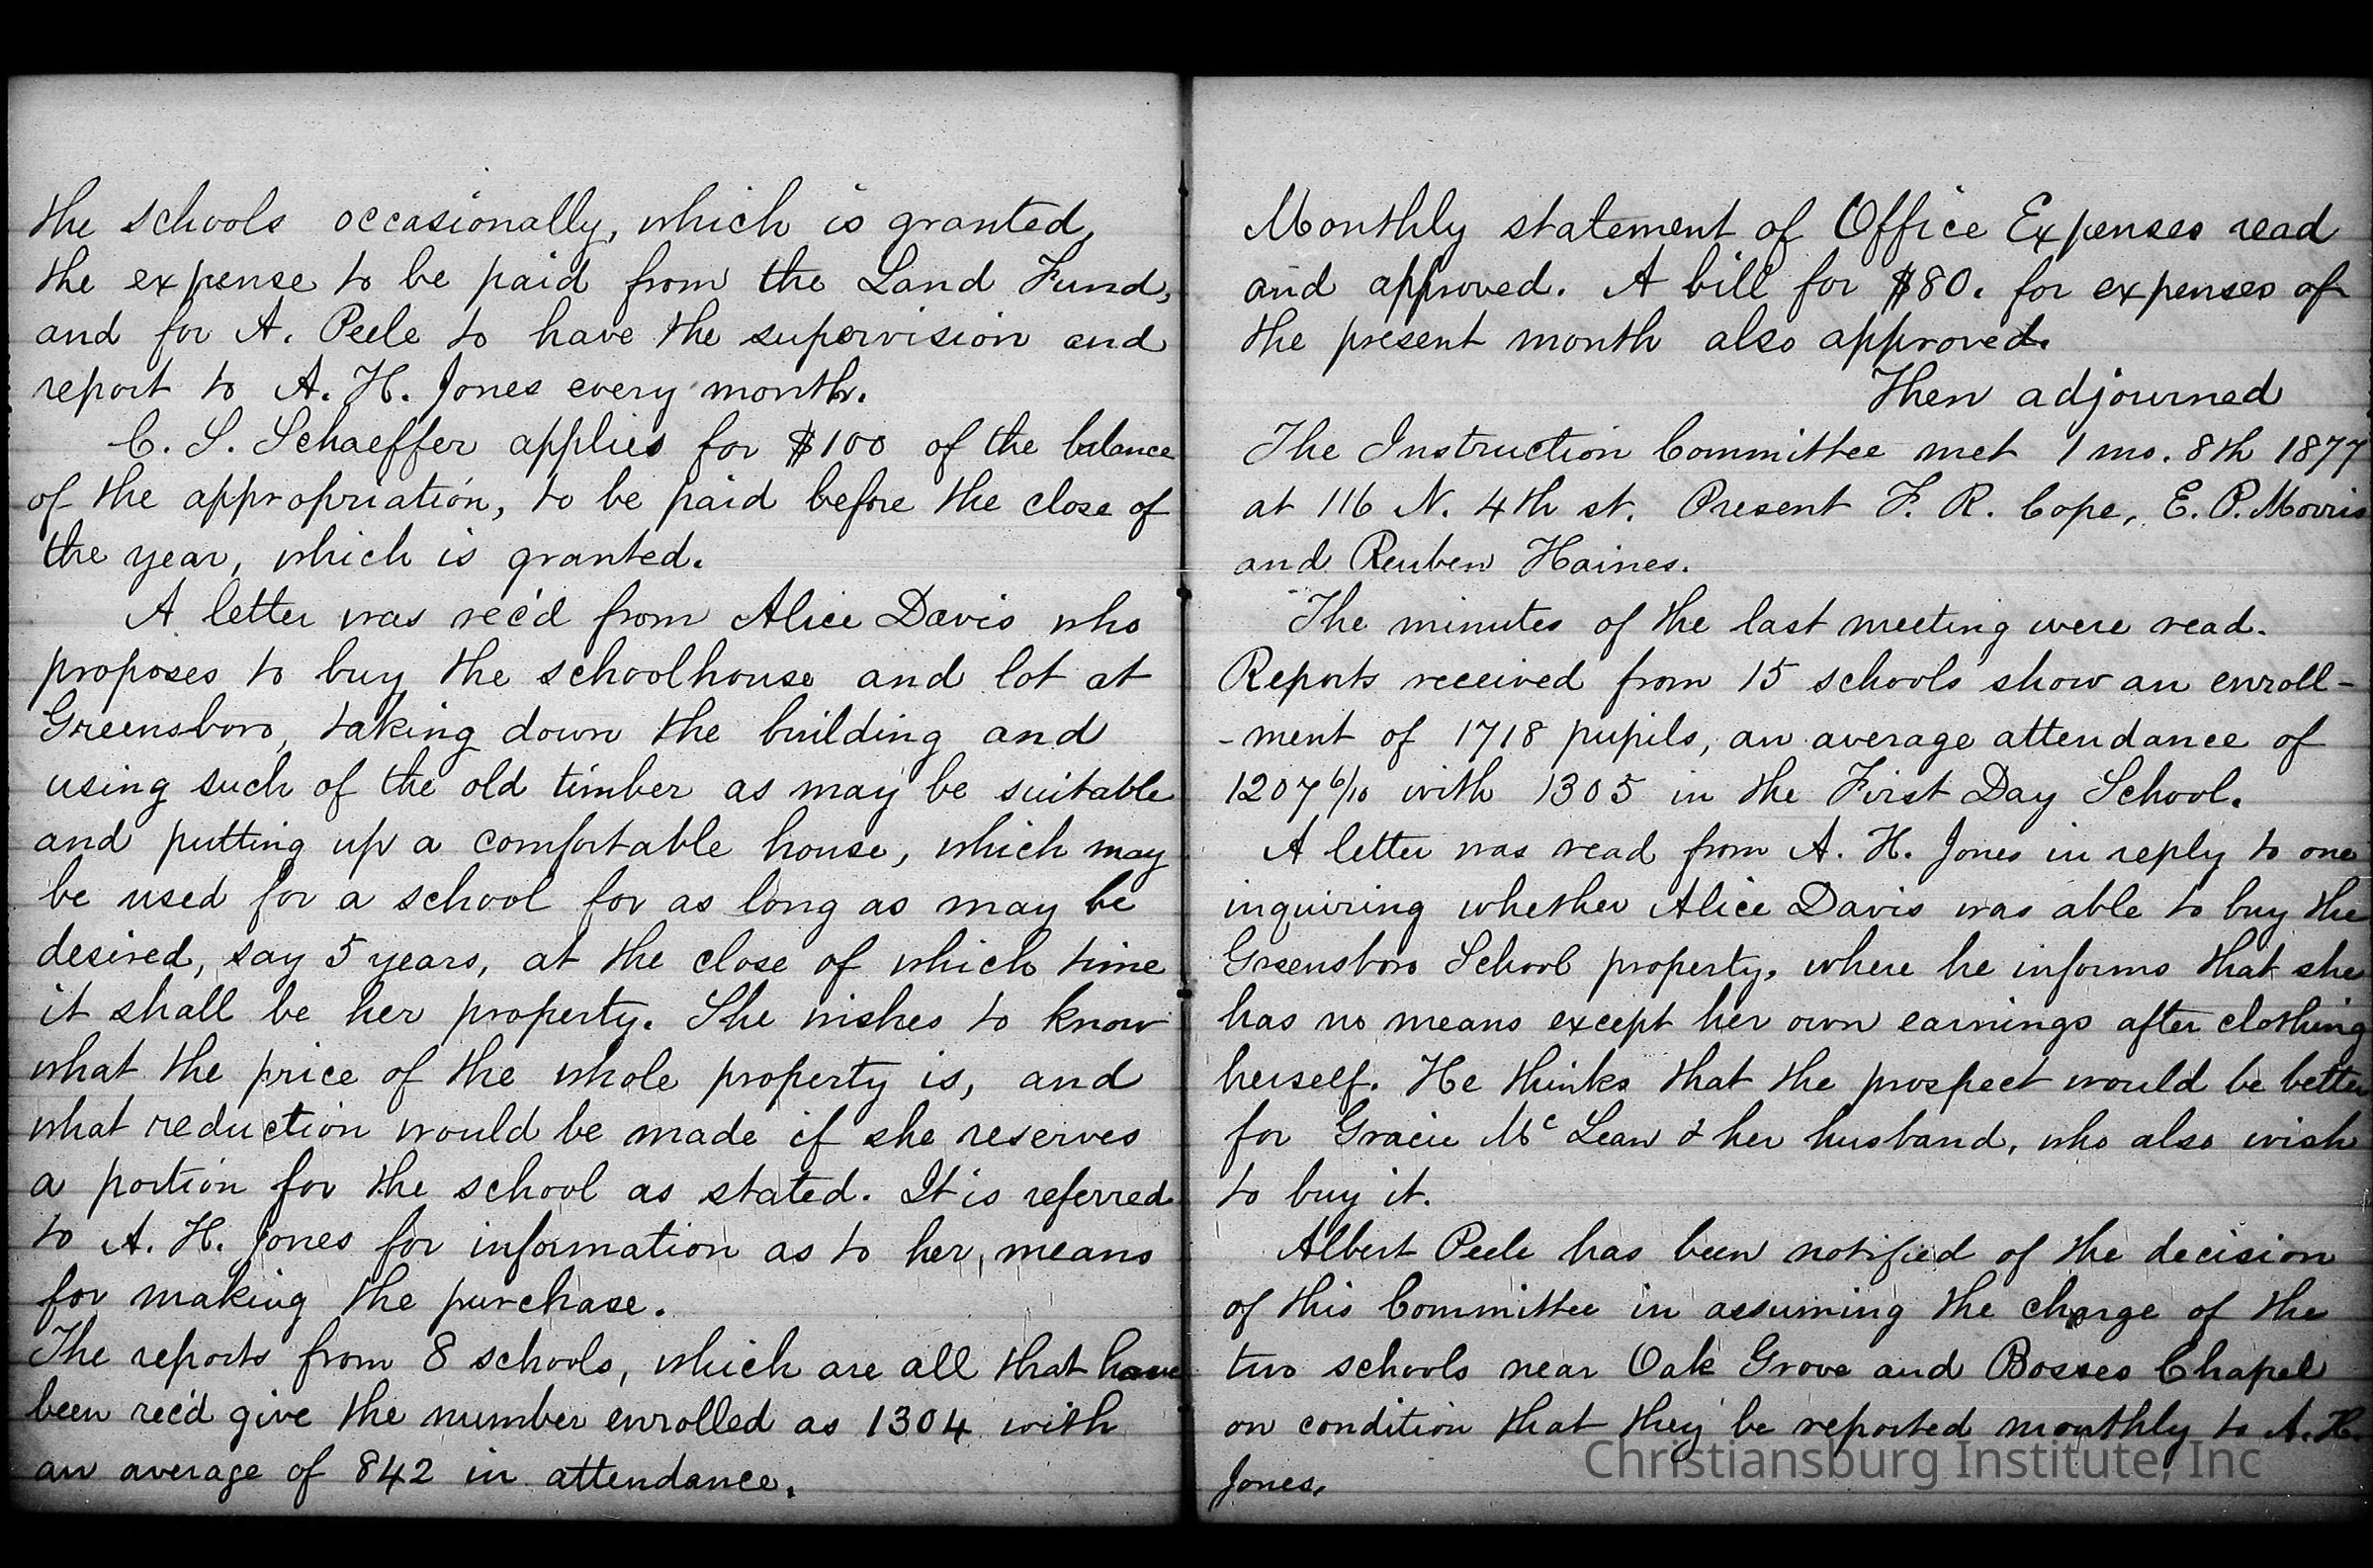 the schools occasionally, which is granted,
the expense to be paid from the Land Fund,
and for A. Peele to have the supervision and
report to A. H. Jones every month.
C. S. Schaeffer applies for $100 of the balance
of the appropriation, to be paid before the close of
the year, which is granted.
A letter was rec'd from Alice Davis who
proposes to buy the schoolhouse and lot at
Greensboro, taking down the building and
using such of the old timber as may be suitable
and putting up a comfortable house, which may
be used for a school for as long as may be
desired, say 5 years, at the close of which time
it shall be her property. She wishes to know
what the price of the whole property is, and
what reduction would be made if she reserves
a portion for the school as stated. It is referred
to A. H. Jones for information as to her means
for making the purchase.
The reports from 8 schools, which are all that have
been rec'd give the number enrolled as 1304 with
an average of 842 in attendance.
Monthly statement of Office Expenses read
and approved. A bill for $80. for expenses of
the present month also approved.
Then adjourned
The Instruction Committee met 1 mo. 8th 1877
at 116 N. 4th st. Present F. R. Cope, E. P. Morris
and Reuben Haines.
The minutes of the last meeting were read.
Reports received from 15 schools show an enroll-
-ment of 1718 pupils, an average attendance of
1207 6/10 with 1305 in the First Day School.
A letter was read from A. H. Jones in reply to one
inquiring whether Alice Davis was able to buy the
Greensboro School property, where he informs that she
has no means except her own earnings after clothing
herself. He thinks that the prospect would be better
for Gracie Mc Lean & her husband, who also wish
to buy it.
Albert Peele has been notified of the decision
of this Committee in assuming the charge of the
two schools near Oak Grove and Bosses Chapel
on condition that they be reported monthly to A. H.
Jones.
Christiansburg Institute, Inc